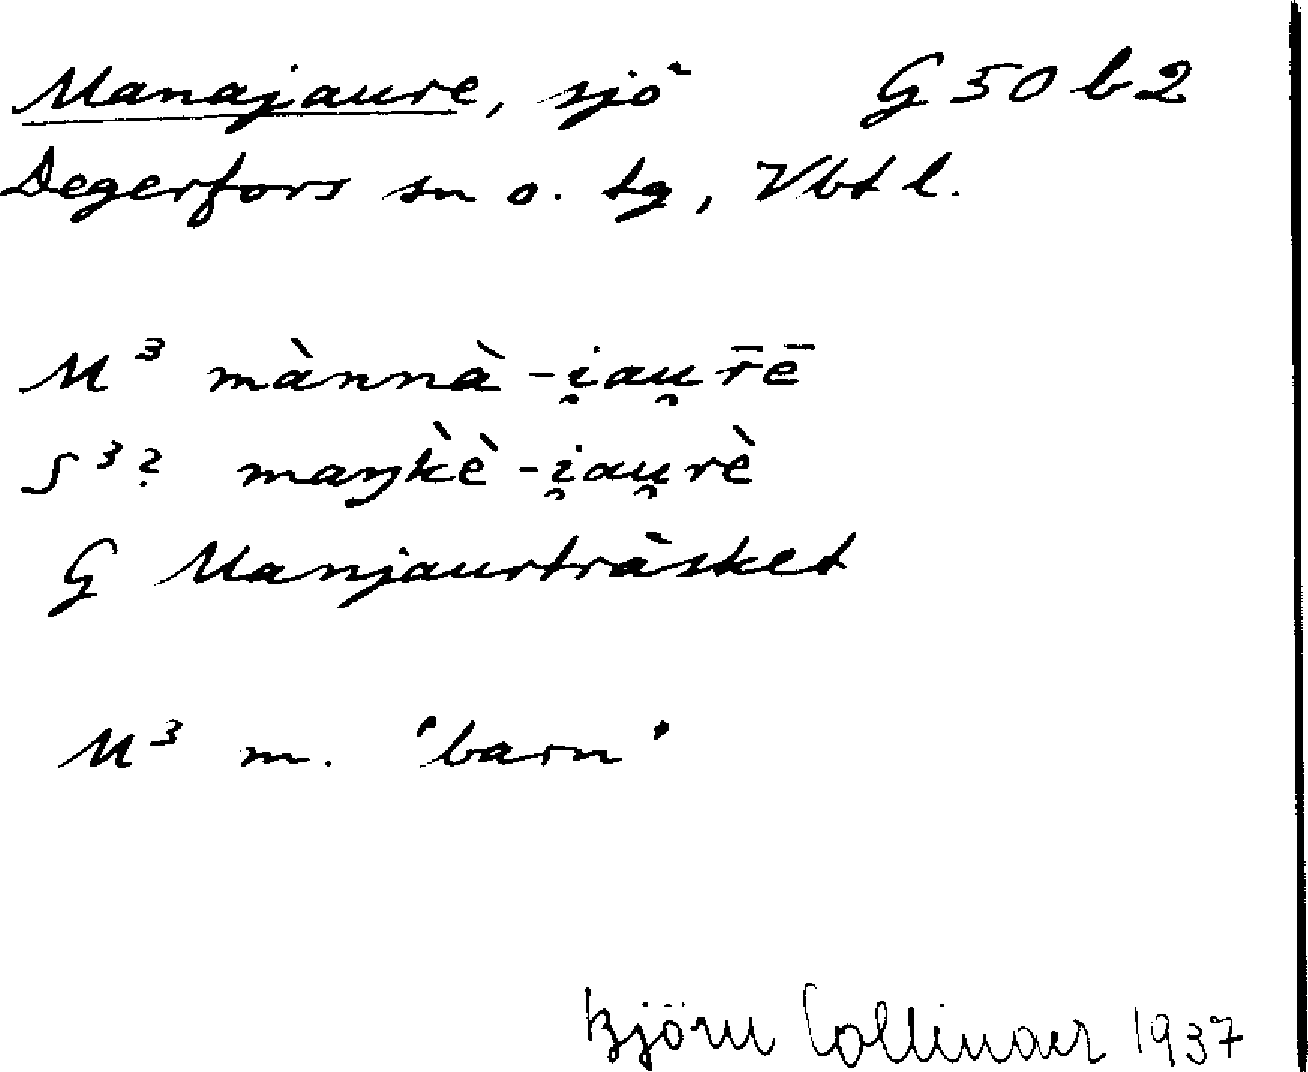 Manajaure, sjö G 50 b 2
Degerfors sn o. tg, Vbt l.
M³ mànnà-i̯au̯r̄ē
S³? maŋk̀è-i̯au̯rè
G Manjaurträsket
M³ m. 'barn'
Björn Collinder 1937